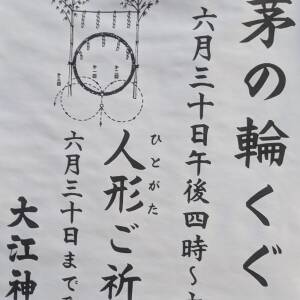 茅の輪くぐ
六月三十日午後四時〜
人形ご祈
ひとがた
六月三十日まで
大江神